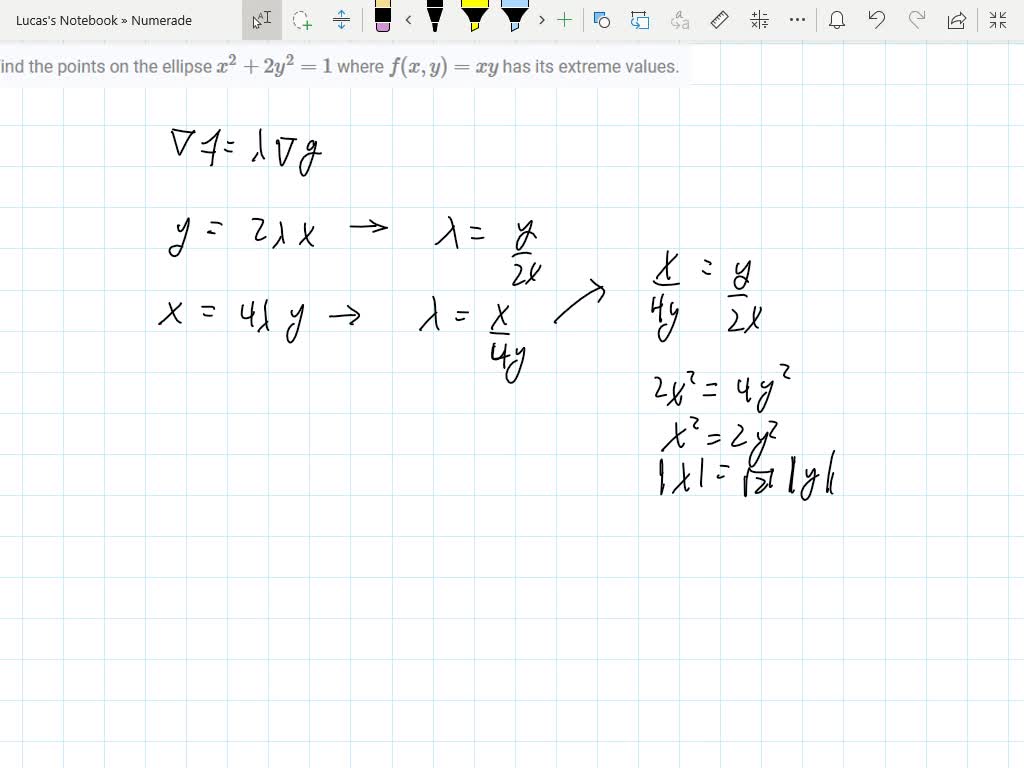 Lucas's Notebook » Numerade
ind the points on the ellipse x² + 2y² = 1 where f(x, y) = xy has its extreme values.
∇f = λ∇g
y = 2λx → λ = y/2x
x = 4λy → λ = x/4y
x/4y = y/2x
2x² = 4y²
x² = 2y²
|x| = √2 |y|